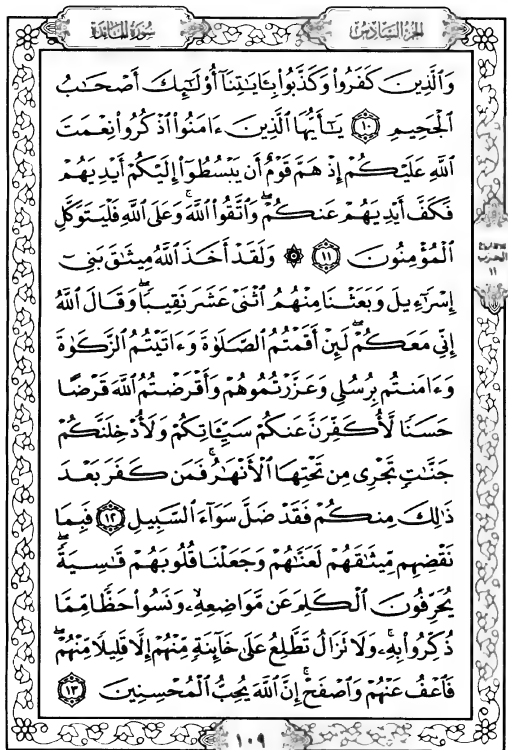 سُورَةُ المَائِدَةِ
الجُزْءُ السَّادِسُ
وَٱلَّذِينَ كَفَرُوا۟ وَكَذَّبُوا۟ بِـَٔايَٰتِنَآ أُو۟لَٰٓئِكَ أَصْحَٰبُ
ٱلْجَحِيمِ ١٠ يَٰٓأَيُّهَا ٱلَّذِينَ ءَامَنُوا۟ ٱذْكُرُوا۟ نِعْمَتَ
ٱللَّهِ عَلَيْكُمْ إِذْ هَمَّ قَوْمٌ أَن يَبْسُطُوٓا۟ إِلَيْكُمْ أَيْدِيَهُمْ
فَكَفَّ أَيْدِيَهُمْ عَنكُمْ ۖ وَٱتَّقُوا۟ ٱللَّهَ ۚ وَعَلَى ٱللَّهِ فَلْيَتَوَكَّلِ
ٱلْمُؤْمِنُونَ ١١ ۞ وَلَقَدْ أَخَذَ ٱللَّهُ مِيثَٰقَ بَنِىٓ
إِسْرَٰٓءِيلَ وَبَعَثْنَا مِنْهُمُ ٱثْنَىْ عَشَرَ نَقِيبًا ۖ وَقَالَ ٱللَّهُ
إِنِّى مَعَكُمْ ۖ لَئِنْ أَقَمْتُمُ ٱلصَّلَوٰةَ وَءَاتَيْتُمُ ٱلزَّكَوٰةَ
وَءَامَنتُم بِرُسُلِى وَعَزَّرْتُمُوهُمْ وَأَقْرَضْتُمُ ٱللَّهَ قَرْضًا
حَسَنًا لَّأُكَفِّرَنَّ عَنكُمْ سَيِّـَٔاتِكُمْ وَلَأُدْخِلَنَّكُمْ
جَنَّٰتٍ تَجْرِى مِن تَحْتِهَا ٱلْأَنْهَٰرُ ۚ فَمَن كَفَرَ بَعْدَ
ذَٰلِكَ مِنكُمْ فَقَدْ ضَلَّ سَوَآءَ ٱلسَّبِيلِ ١٢ فَبِمَا
نَقْضِهِم مِّيثَٰقَهُمْ لَعَنَّٰهُمْ وَجَعَلْنَا قُلُوبَهُمْ قَٰسِيَةً ۖ
يُحَرِّفُونَ ٱلْكَلِمَ عَن مَّوَاضِعِهِۦ ۙ وَنَسُوا۟ حَظًّا مِّمَّا
ذُكِّرُوا۟ بِهِۦ ۚ وَلَا تَزَالُ تَطَّلِعُ عَلَىٰ خَآئِنَةٍ مِّنْهُمْ إِلَّا قَلِيلًا مِّنْهُمْ ۖ
فَٱعْفُ عَنْهُمْ وَٱصْفَحْ ۚ إِنَّ ٱللَّهَ يُحِبُّ ٱلْمُحْسِنِينَ ١٣
الحزب
١١
١٠٩